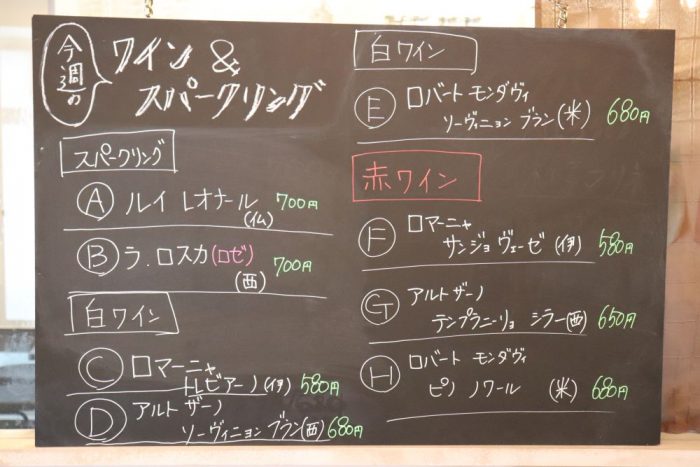 今週の
ワイン &
スパークリング
スパークリング
A ルイ レオナール 700円
(仏)
B ラ.ロスカ(ロゼ) 700円
(西)
白ワイン
C ロマーニャ
トレビアーノ(伊) 580円
D アルトザーノ
ソーヴィニョンブラン(西) 680円
白ワイン
E ロバート モンダヴィ
ソーヴィニョン ブラン(米) 680円
赤ワイン
F ロマーニャ
サンジョヴェーゼ (伊) 580円
G アルトザーノ
テンプラニーリョ シラー(西) 650円
H ロバート モンダヴィ
ピノ ノワール (米) 680円